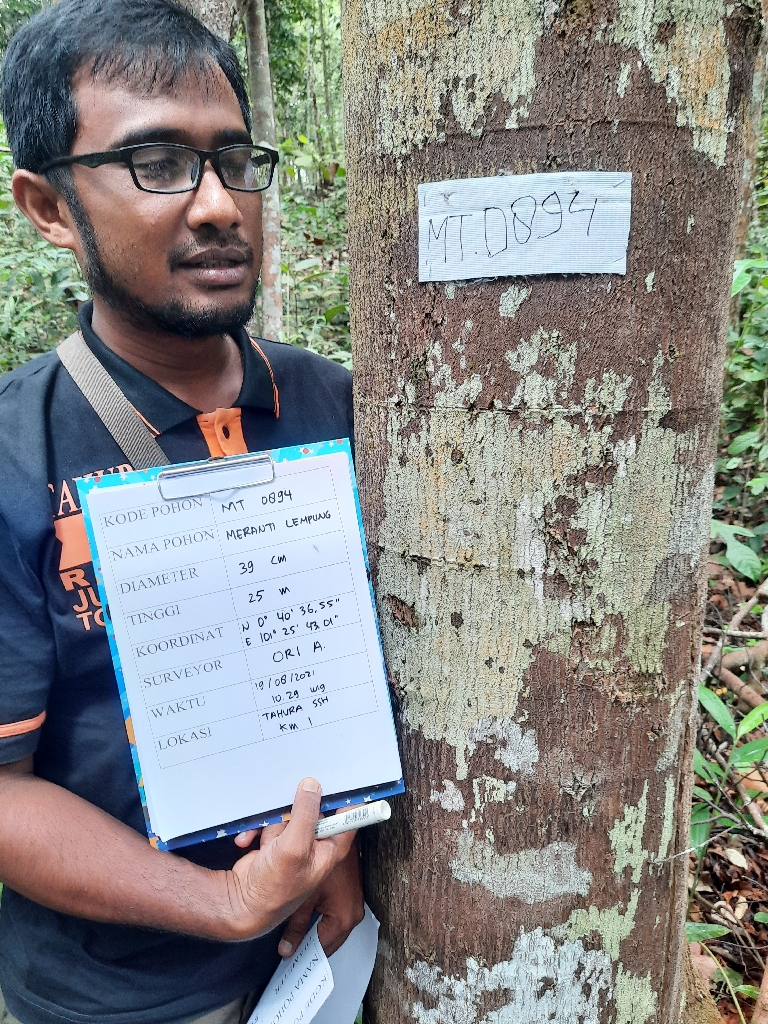 MT.0894
KODE POHON MT 0894
NAMA POHON MERANTI LEMPUNG
DIAMETER 39 CM
TINGGI 25 m
KOORDINAT N 0° 40' 36.55"
E 101° 25' 43.01"
SURVEYOR ORI A.
WAKTU 19/08/2021
10.29 WIB
LOKASI TAHURA SSH
KM 1